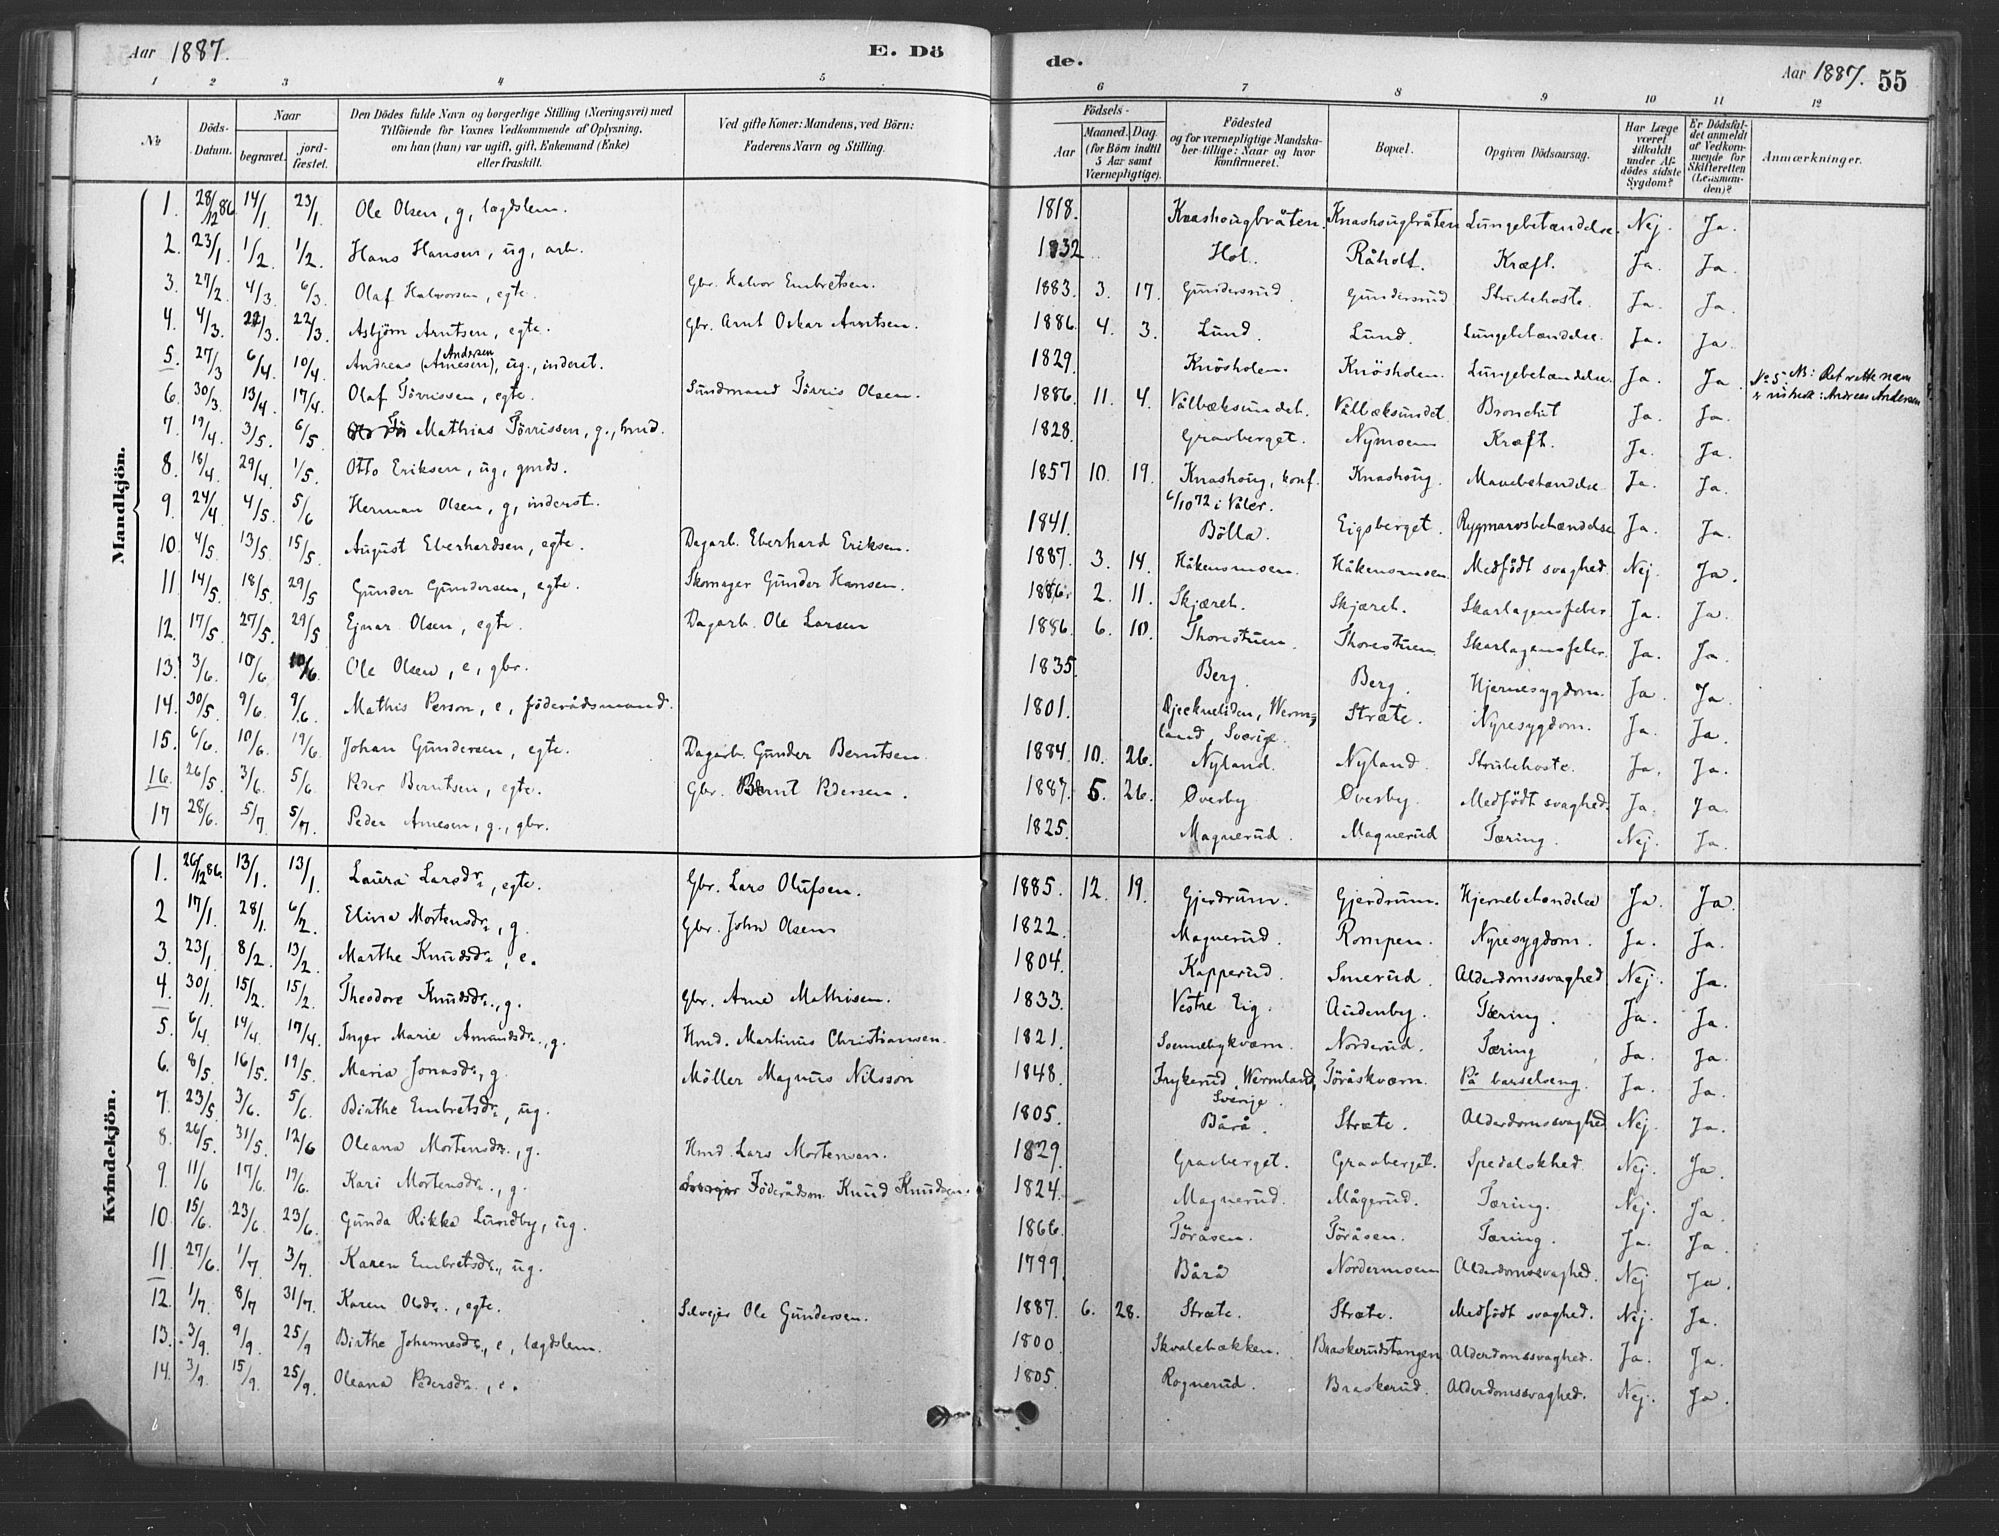 Aar 1887. E. Dö de. Aar 1887. 55
1 2 3 4 5 6 7 8 9 10 11 12
No Döds-Datum. Naar begravet. jord-fæstet. Den Dödes fulde Navn og borgerlige Stilling (Næringsvei) med Tilföiende for Voxnes Vedkommende af Oplysning, om han (hun) var ugift, gift, Enkemand (Enke) eller fraskilt. Ved gifte Koner: Mandens, ved Börn: Faderens Navn og Stilling. Födsels- Aar Maaned. Dag. (for Börn indtil 5 Aar samt Værnepligtige). Födested og for værnepligtige Mandskaber tillige: Naar og hvor konfirmeret. Bopæl. Opgiven Dödsaarsag. Har Læge været tilkaldt under Afdödes sidste Sygdom? Er Dödsfaldet anmeldt af Vedkommende for Skifteretten (Lensmanden)? Anmærkninger.
Mandkjön.
1. 28/12 86. 14/1. 23/1. Ole Olsen, g, lægdslem. 1818. Knashougbråten. Knashougbråten Lungebetændelse. Nej. Ja.
2. 23/1. 1/2. 1/2. Hans Hansen, ug, arb. 1832 Hol. Råholt. Kræft. Ja. Ja.
3. 27/2 4/3. 6/3. Olaf Halvorsen, egte. Gbr. Halvor Embretsen. 1883. 3. 17. Gundersrud. Gundersrud Strubehoste. Ja. Ja.
4. 4/3. 22/3. 22/3. Asbjørn Arntsen, egte. Gbr. Arnt Oskar Arntsen. 1886. 4. 3. Lund. Lund. Lungebetændelse. Ja. Ja.
5. 27/3 6/4. 10/4. Andreas (Arnesen) Andersen, ug., inderst. 1829. Knösholen. Knösholen. Lungebetændelse. Ja. Ja. No 5 NB: Det rette navn
6. 30/3. 13/4. 17/4. Olaf Törrissen, egte. Sundmand Törris Olsen. 1886. 11. 4. Vålbæksundet. Vålbæksundet Bronchit Ja. Ja. : Andreas Andersen
7. 19/4. 3/5. 6/5. Mathias Törrissen, g., hmd. 1828. Gravberget. Nymoen Kræft. Ja. Ja.
8. 18/4. 29/4. 1/5. Otto Eriksen, ug, gmds. 1857 10. 19. Knashoug, konf. Knashoug. Mavebetændelse. Ja. Ja.
6/10 72 i Våler.
9. 24/4. 4/5. 5/6 Herman Olsen, g, inderst. 1841. Bölla. Eigsberget. Rygmarvsbetændelse Ja. Ja.
10. 4/5. 13/5. 15/5. August Eberhardsen, egte. Dagarb. Eberhard Eriksen. 1887. 3. 14. Håkensmoen. Håkensmoen. Medfödt svaghed. Nej. Ja.
11 14/5. 18/5. 29/5 Gunder Gundersen, egte. Skomager Gunder Hansen. 1886. 2. 11. Skjæret. Skjæret. Skarlagensfeber Ja. Ja.
12. 17/5. 27/5. 29/5 Ejnar Olsen, egte. Dagarb. Ole Larsen 1886. 6. 10. Thorestuen. Thorestuen. Skarlagensfeber. Ja. Ja.
13. 3/6. 10/6 10/6. Ole Olsen, e, gbr. 1835 Berg. Berg. Hjernesygdom. Ja. Ja.
14. 30/5. 9/6. 9/6. Mathis Person, e, föderådsmand. 1801. Werm- Stræte. Nyresygdom. Ja. Ja.
land, Sverige.
15. 6/6. 10/6. 19/6. Johan Gundersen, egte. Dagarb. Gunder Berntsen. 1884. 10. 26. Nyland. Nyland. Strubehoste. Ja. Ja.
16. 26/5. 3/6. 5/6 Peder Berntsen, egte. Gbr. Bernt Pedersen. 1887. 5. 26. Øverby Øverby. Medfödt svaghed. Ja. Ja.
17 28/6. 5/7. 5/7. Peder Arnesen, g., gbr. 1825. Magnerud. Magnerud Tæring. Nej. Ja.
Kvindekjön.
1. 26/12 86. 13/1. 13/1. Laura Larsdr., egte. Gbr. Lars Olufsen. 1885. 12. 19. Gjerdrum. Gjerdrum. Hjernebetændelse Ja. Ja.
2 17/1. 28/1. 6/2. Elina Mortensdr., g. Gbr. John Olsen 1822. Magnerud. Rompen. Nyresygdom. Ja. Ja.
3. 23/1. 8/2. 13/2. Marthe Knudsdr., e. 1804. Kapperud. Smerud. Alderdomssvaghed Nej. Ja.
4. 30/1. 15/2. 15/2. Theodore Knudsdr., g. Gbr. Arne Mathisen. 1833. Vestre Eig. Audenby. Tæring. Ja. Ja.
5. 6/4. 14/4. 17/4. Inger Marie Amundsdr., g. Hmd. Martinus Christiansen. 1821. Sönnebykværn. Norderud. Tæring Ja. Ja.
6. 8/5. 16/5. 19/5. Maria Jonasdr., g. Möller Magnus Nilsson 1848. Frykerud, Wermland, Töråskværn. På barselseng. Ja. Ja.
Sverige.
7. 23/5 3/6. 5/6. Birthe Embretsdr., ug. 1805. Bårå. Stræte. Alderdomssvaghed Nej. Ja.
8. 26/5. 31/5. 12/6 Oleana Mortensdr., g. Hmd. Lars Mortensen. 1829. Gravberget. Gravberget. Spedalskhed. Nej. Ja.
9. 11/6 17/6. 19/6. Kari Mortensdr., g. Föderådsm. Knud Knudsen. 1824. Magnerud. Mågerud. Tæring. Nej. Ja.
10. 15/6. 23/6. 23/6. Gunda Rikka Lundby, ug. 1866. Töråsen. Töråsen. Tæring. Ja. Ja.
11. 27/6. 1/7 3/7. Karen Embretsdr., ug. 1799. Bårå Nordermoen Alderdomssvaghed. Nej Ja.
12. 1/7. 8/7 31/7. Karen Olsdr., egte. Selvejer Ole Gundersen. 1887. 6. 28. Stræte. Stræte. Medfödt svaghed. Nej. Ja.
13. 3/9. 9/9. 25/9 Birthe Johannesdr., e, lægdslem. 1800. Skvalebækken. Braskerudstangen Alderdomssvaghed. Ja. Ja.
14. 3/9. 15/9. 25/9. Oleana Pedersdr., e. 1805. Rognerud. Braskerud. Alderdomssvaghed. Nej. Ja.